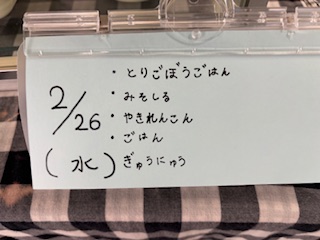 2/26
(水)
・とりごぼうごはん
・みそしる
・やきれんこん
・ごはん
ぎゅうにゅう